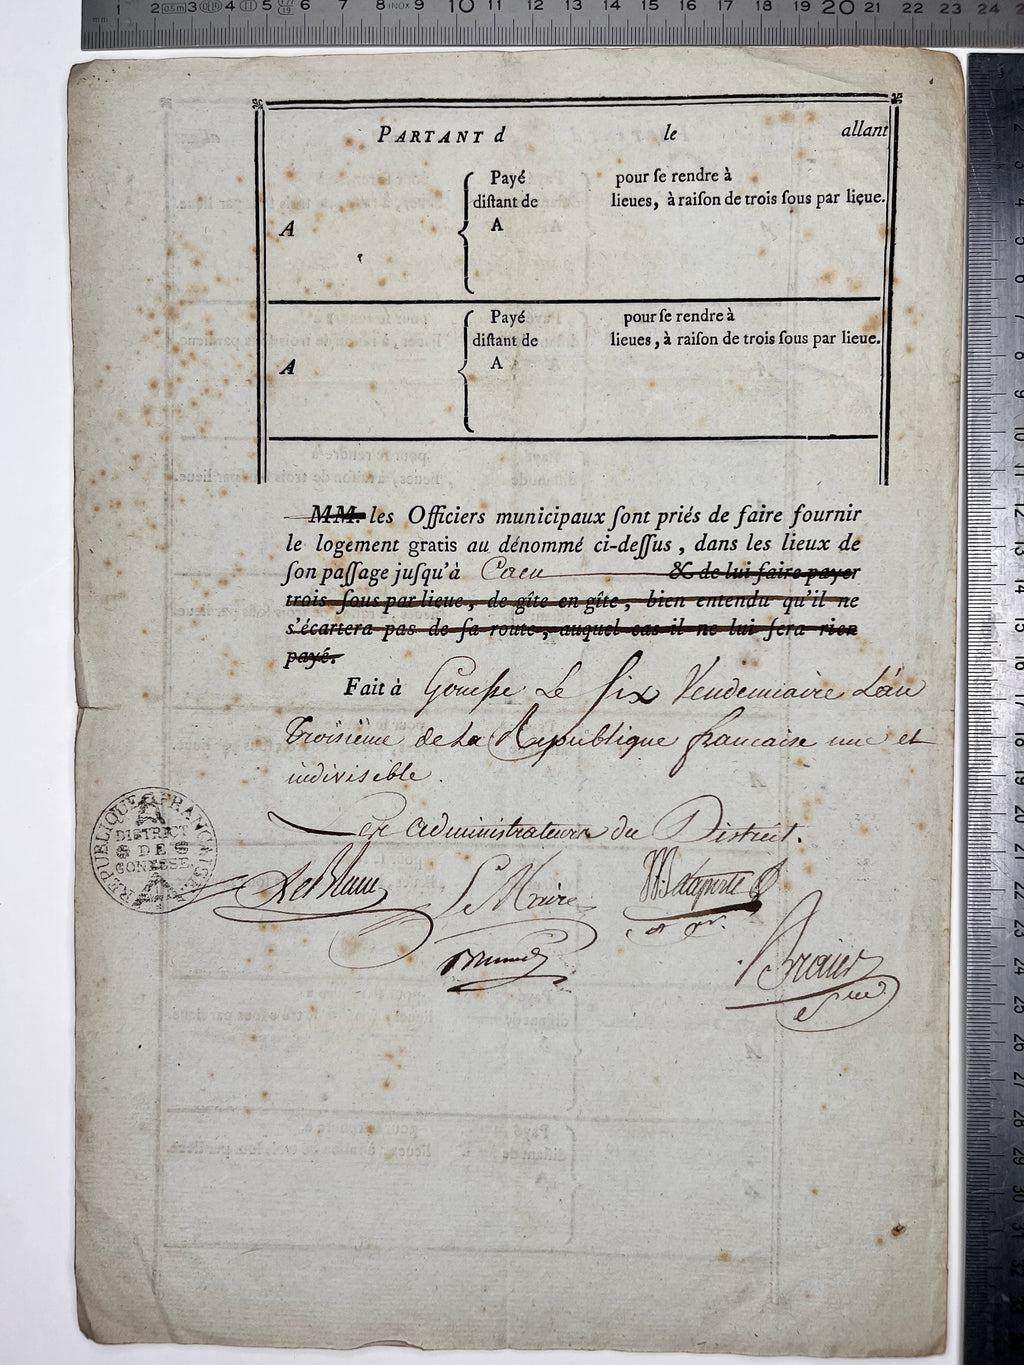 PARTANT d le allant
Payé pour ſe rendre à
diſtant de lieues, à raiſon de trois ſous par lieue.
A A
Payé pour ſe rendre à
diſtant de lieues, à raiſon de trois ſous par lieue.
A A
MM. les Officiers municipaux ſont priés de faire fournir
le logement gratis au dénommé ci-deſſus, dans les lieux de
ſon paſſage juſqu'à Caen & de lui faire payer
trois ſous par lieue, de gîte en gîte, bien entendu qu'il ne
s'écartera pas de ſa route, auquel cas il ne lui ſera rien
payé.
Fait à Gonesse Le six Vendemiaire L'an
Troisième de La Republique francaise une et
indivisible.
Les administrateurs du District.
REPUBLIQUE FRANÇAISE
DISTRICT
DE
GONESSE
LeBlanc Le Maire Delaporte